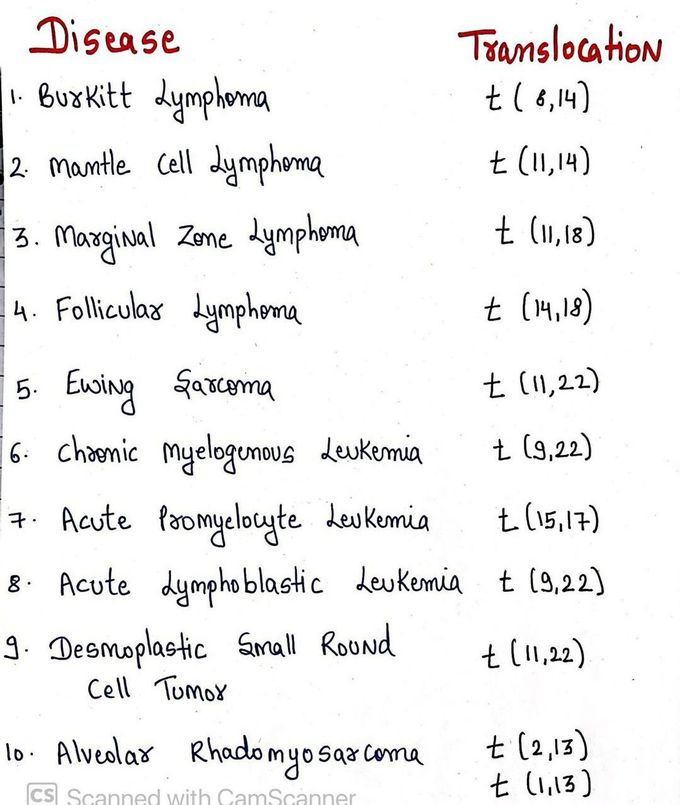 Disease Translocation
1. Burkitt Lymphoma t (8,14)
2. Mantle Cell Lymphoma t (11,14)
3. Marginal Zone Lymphoma t (11,18)
4. Follicular Lymphoma t (14,18)
5. Ewing Sarcoma t (11,22)
6. Chronic Myelogenous Leukemia t (9,22)
7. Acute Promyelocyte Leukemia t (15,17)
8. Acute Lymphoblastic Leukemia t (9,22)
9. Desmoplastic Small Round t (11,22)
Cell Tumor
10. Alveolar Rhadomyosarcoma t (2,13)
t (1,13)
CS Scanned with CamScanner